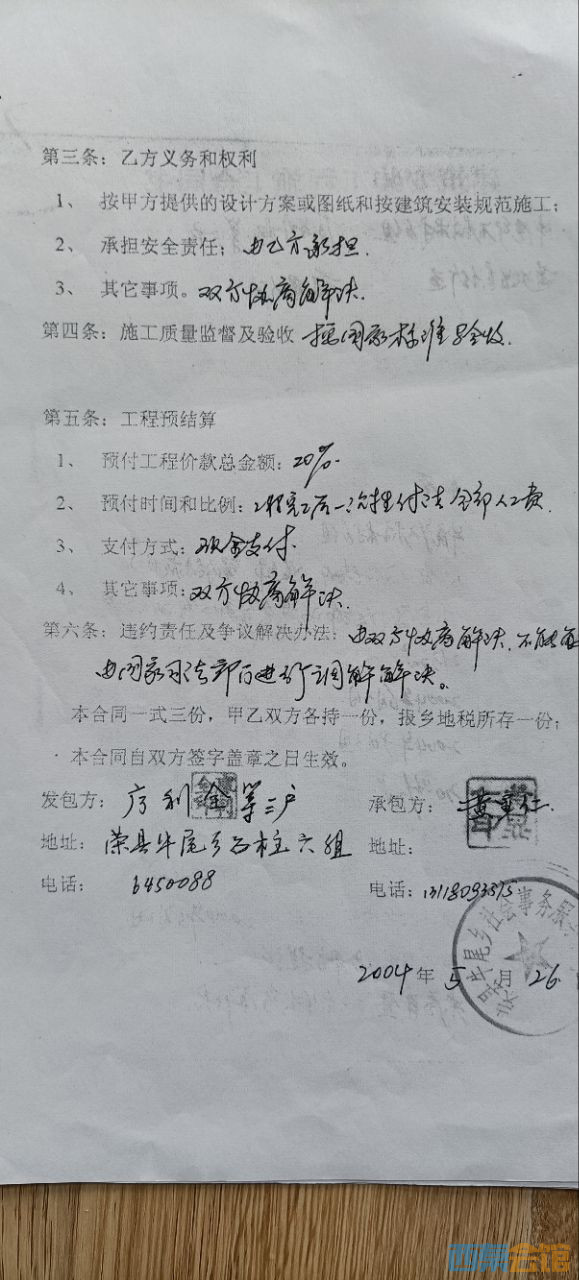 第三条：乙方义务和权利
1、 按甲方提供的设计方案或图纸和按建筑安装规范施工；
2、 承担安全责任；由乙方承担.
3、 其它事项。双方协商解决.
第四条：施工质量监督及验收 按国家标准验收.
第五条：工程预结算
1、 预付工程价款总金额：20%.
2、 预付时间和比例：工程完工后一次性付清全部人工费.
3、 支付方式：现金支付.
4、 其它事项：双方协商解决.
第六条：违约责任及争议解决办法：由双方协商解决.不能
由国家司法部门进行调解解决。
本合同一式三份，甲乙双方各持一份，报乡地税所存一份；
本合同自双方签字盖章之日生效。
发包方： 利金等三户 承包方：
地址： 荣县牛尾乡石柱六组 地址：
电话： 6450088 电话：
牛尾乡社会事务
2004年5月26.
西祠会馆